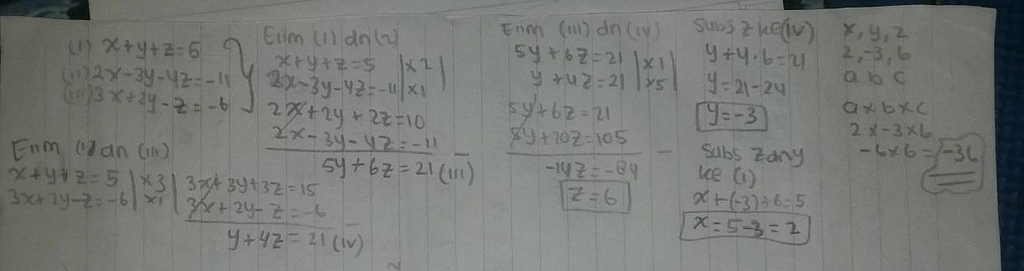 (I) x+y+z=5
(II) 2x-3y-4z=-11
(III) 3x+2y-z=-6
Elim (I) dan (III)
x+y+z=5 | x3
3x+2y-z=-6 | x1
3x+3y+3z=15
3x+2y-z=-6
y+4z=21 (IV)
Elim (1) dn (2)
x+y+z=5 | x2
2x-3y-4z=-11 | x1
2x+2y+2z=10
2x-3y-4z=-11 -
5y+6z=21 (III)
Elim (III) dn (IV)
5y+6z=21 | x1
y+4z=21 | x5
5y+6z=21
5y+20z=105 -
-14z=-84
z=6
Subs z ke (IV)
y+4.6=21
y=21-24
y=-3
Subs z dny
ke (1)
x+(-3)+6=5
x=5-3=2
x, y, z
2, -3, 6
a b c
axbxc
2x-3x6
-6x6=-36